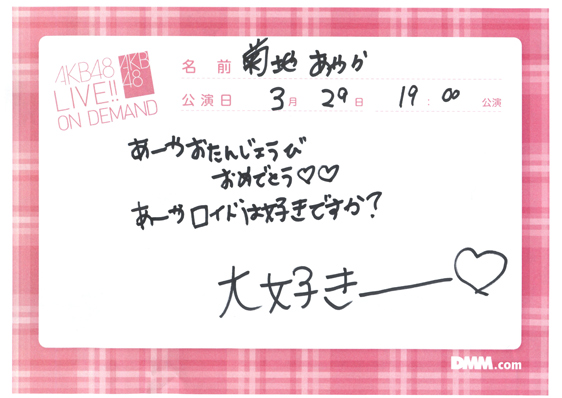 AKB48
LIVE!!
ON DEMAND
AKB
48
名前 菊地あやか
公演日 3月 29日 19:00 公演
あーやおたんじょうび
おめでとう♡♡
あーやロイドは好きですか?
大好き――♡
DMM.com